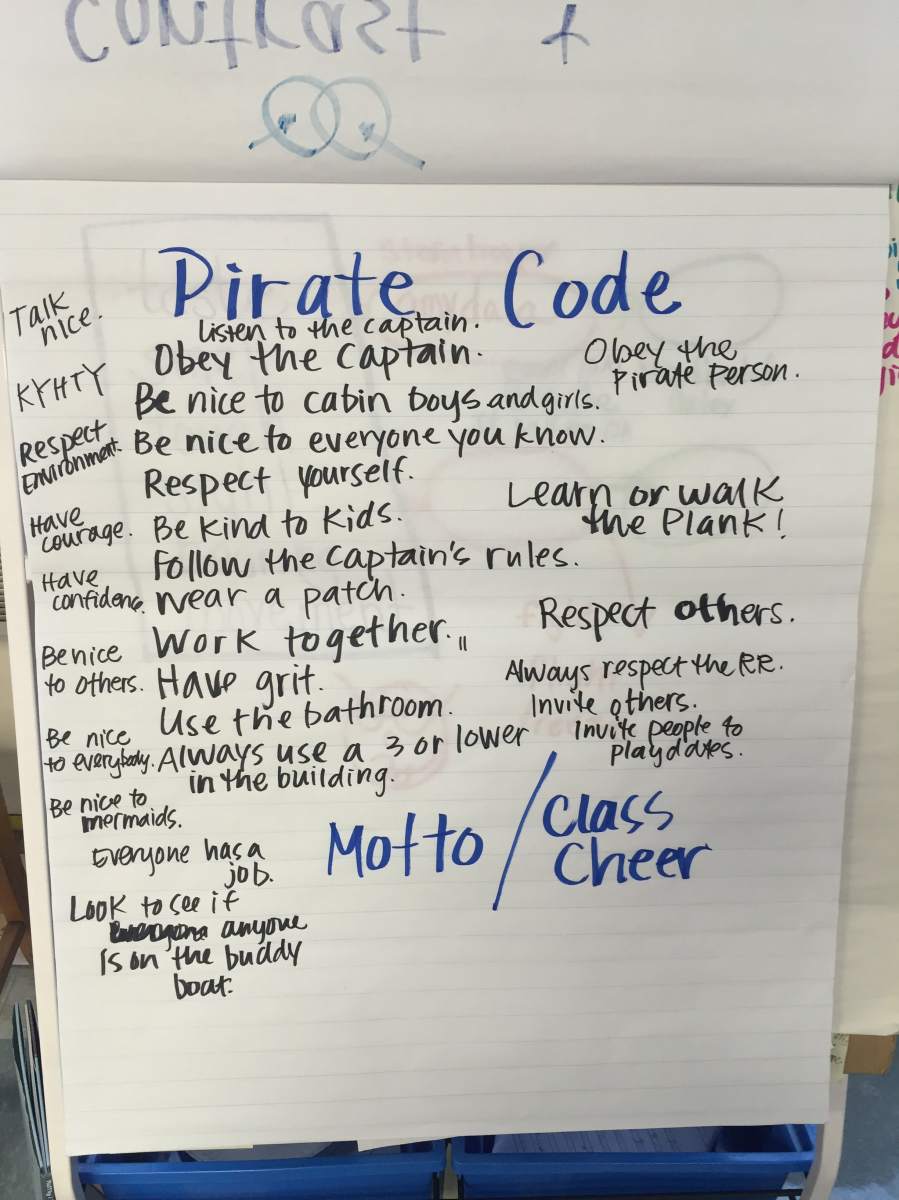 contrast +
Pirate Code
Talk
nice.
KYHTY
Respect
Environment.
Have
courage.
Have
confidence.
Be nice
to others.
Be nice
to everybody.
Be nice to
mermaids.
Everyone has a
job.
Look to see if
anyone
is on the buddy
boat.
Listen to the captain.
Obey the Captain.
Be nice to cabin boys and girls.
Be nice to everyone you know.
Respect yourself.
Be kind to kids.
Follow the captain's rules.
Wear a patch.
Work together. II
Have grit.
Use the bathroom.
Always use a 3 or lower
in the building.
Obey the
Pirate Person.
Learn or walk
the Plank!
Respect others.
Always respect the RR.
Invite others.
Invite people to
playdates.
Motto / Class
Cheer